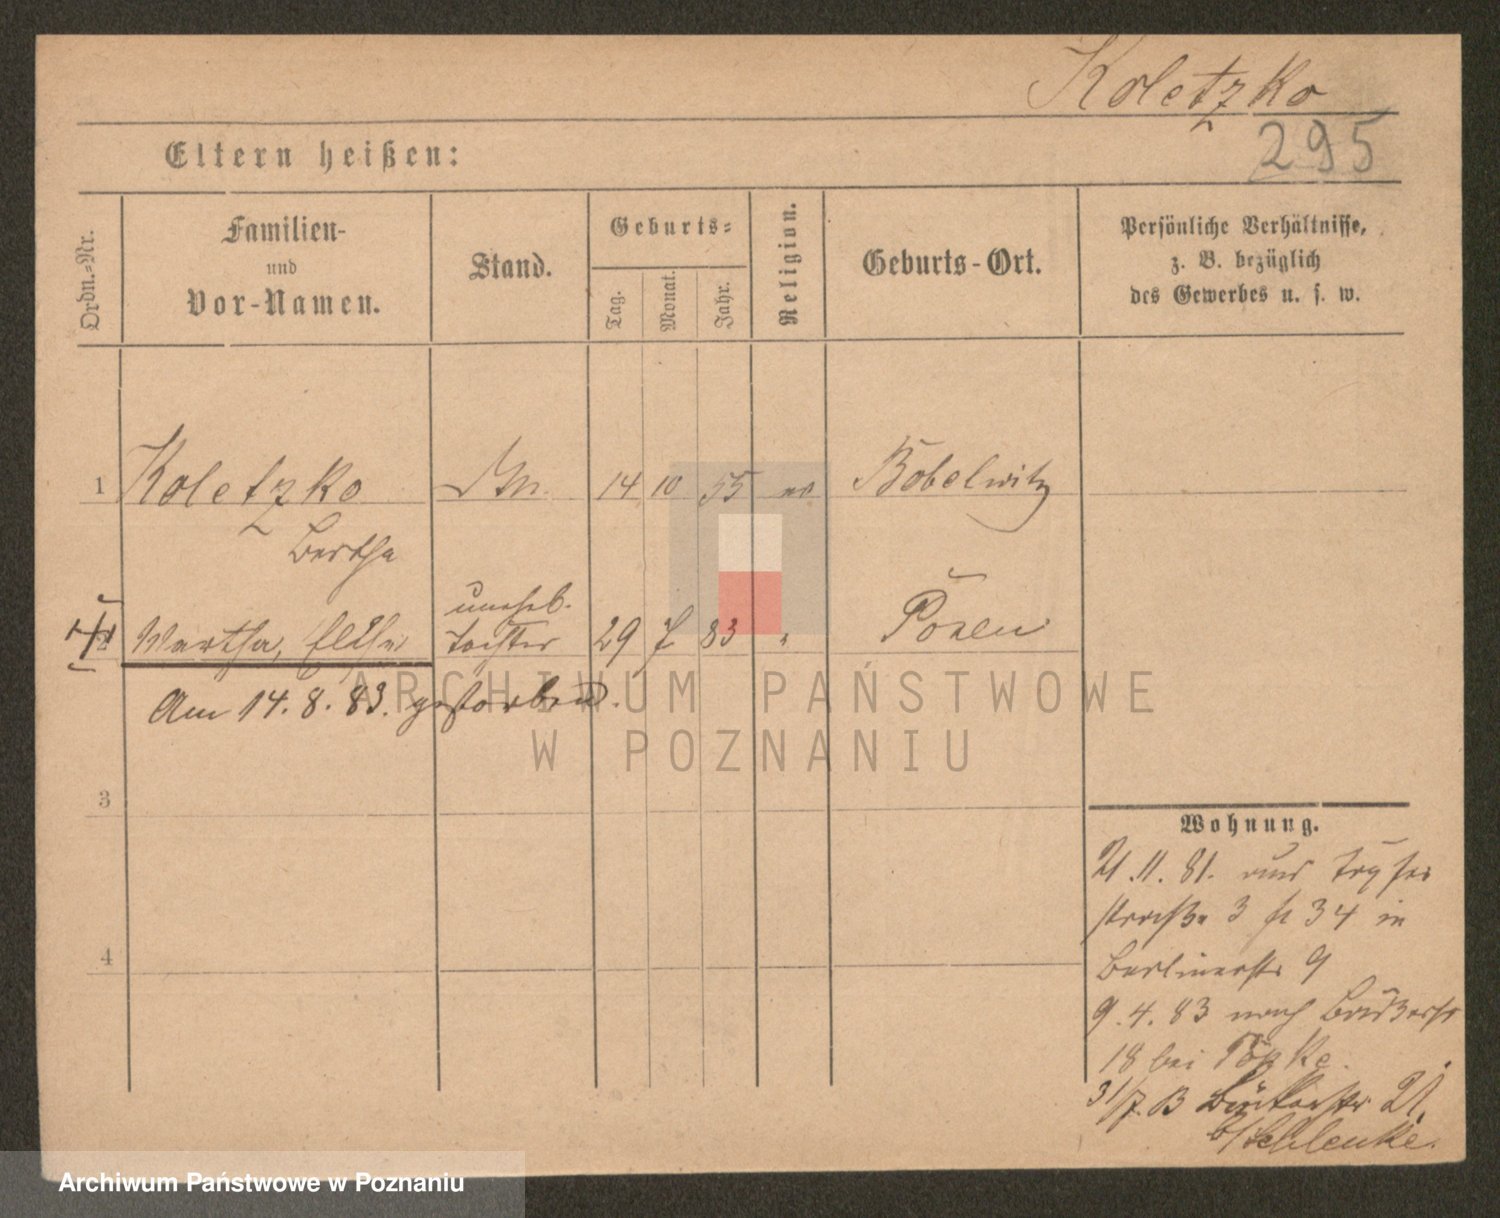 Koletzko
295
Eltern heißen:
Ordn.=Nr.
Familien-
und
Vor-Namen.
Stand.
Geburts=
Tag.
Monat.
Jahr.
Religion.
Geburts-Ort.
Persönliche Verhältnisse,
z. B. bezüglich
des Gewerbes u. s. w.
1 Koletzko 14 10 55 Bobelwitz
Bertha
uneheb.
Martha, Tochter 29 7 83 " Posen
Am 14. 8. 83. gestorben.
3
4
Wohnung.
21. 11. 81. aus
straße 3 34 in
Berlinerstr 9
9. 4. 83 nach
18 bei Töpke.
31/7. 21.
b/Schlenke.
ARCHIWUM PAŃSTWOWE
W POZNANIU
Archiwum Państwowe w Poznaniu